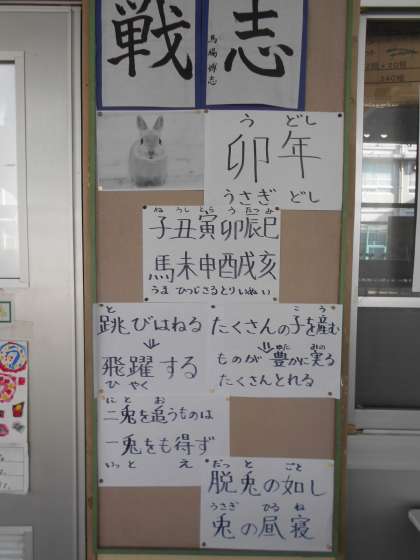 戦
志
馬場博志
う どし
卯年
うさぎ どし
ね うし とら う たつ み
子丑寅卯辰巳
馬未申酉戌亥
うま ひつじ さる とり いぬ い
と
跳びはねる
⇓
飛躍する
ひ やく
こ う
たくさんの子を産む
⇓ ゆた みの
ものが豊かに実る
たくさんとれる
に と お
二兎を追うものは
一兎をも得ず
いっ と え
だっ と ごと
脱兎の如し
うさぎ ひる ね
兎の昼寝